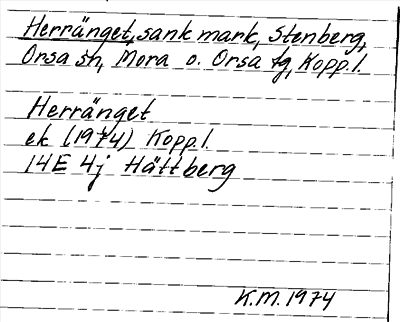 Herränget, sank mark, Stenberg,
Orsa sn, Mora o. Orsa tg, Kopp. l.
Herränget
ek (1974) Kopp. l.
14E 4j Hättberg
K.M. 1974